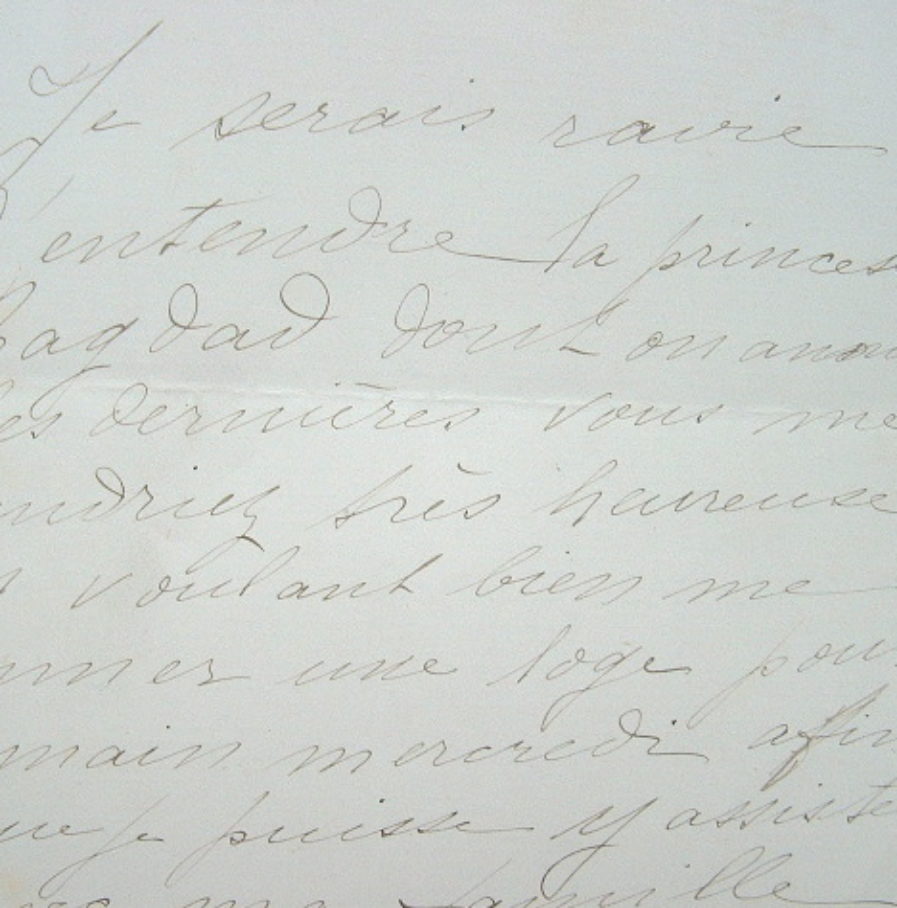 Je serais ravie
d'entendre la princes
Bagdad dont on anon
les dernières vous me
endriez très heureuse
voulant bien me
nner une loge pour
main mercredi afin
ue je puisse y assiste
ma famille